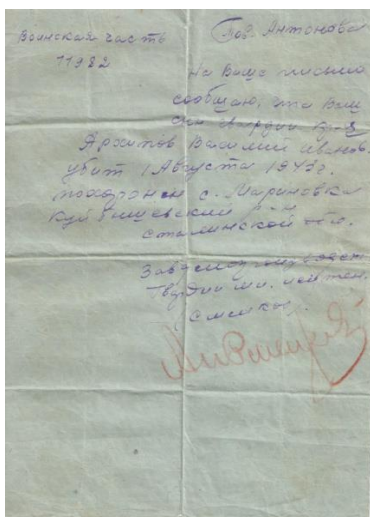 Воинская часть
11982
Тов. Антонова
На Ваше письмо
сообщаю, что Ваш
гвардии кр-ц
Архипов Василий Иванов.
убит 1 Августа 1943 г.
похоронен с. Мариновка
Куйбышевский р-н
Сталинской обл.
гвардии мл. лейтен.